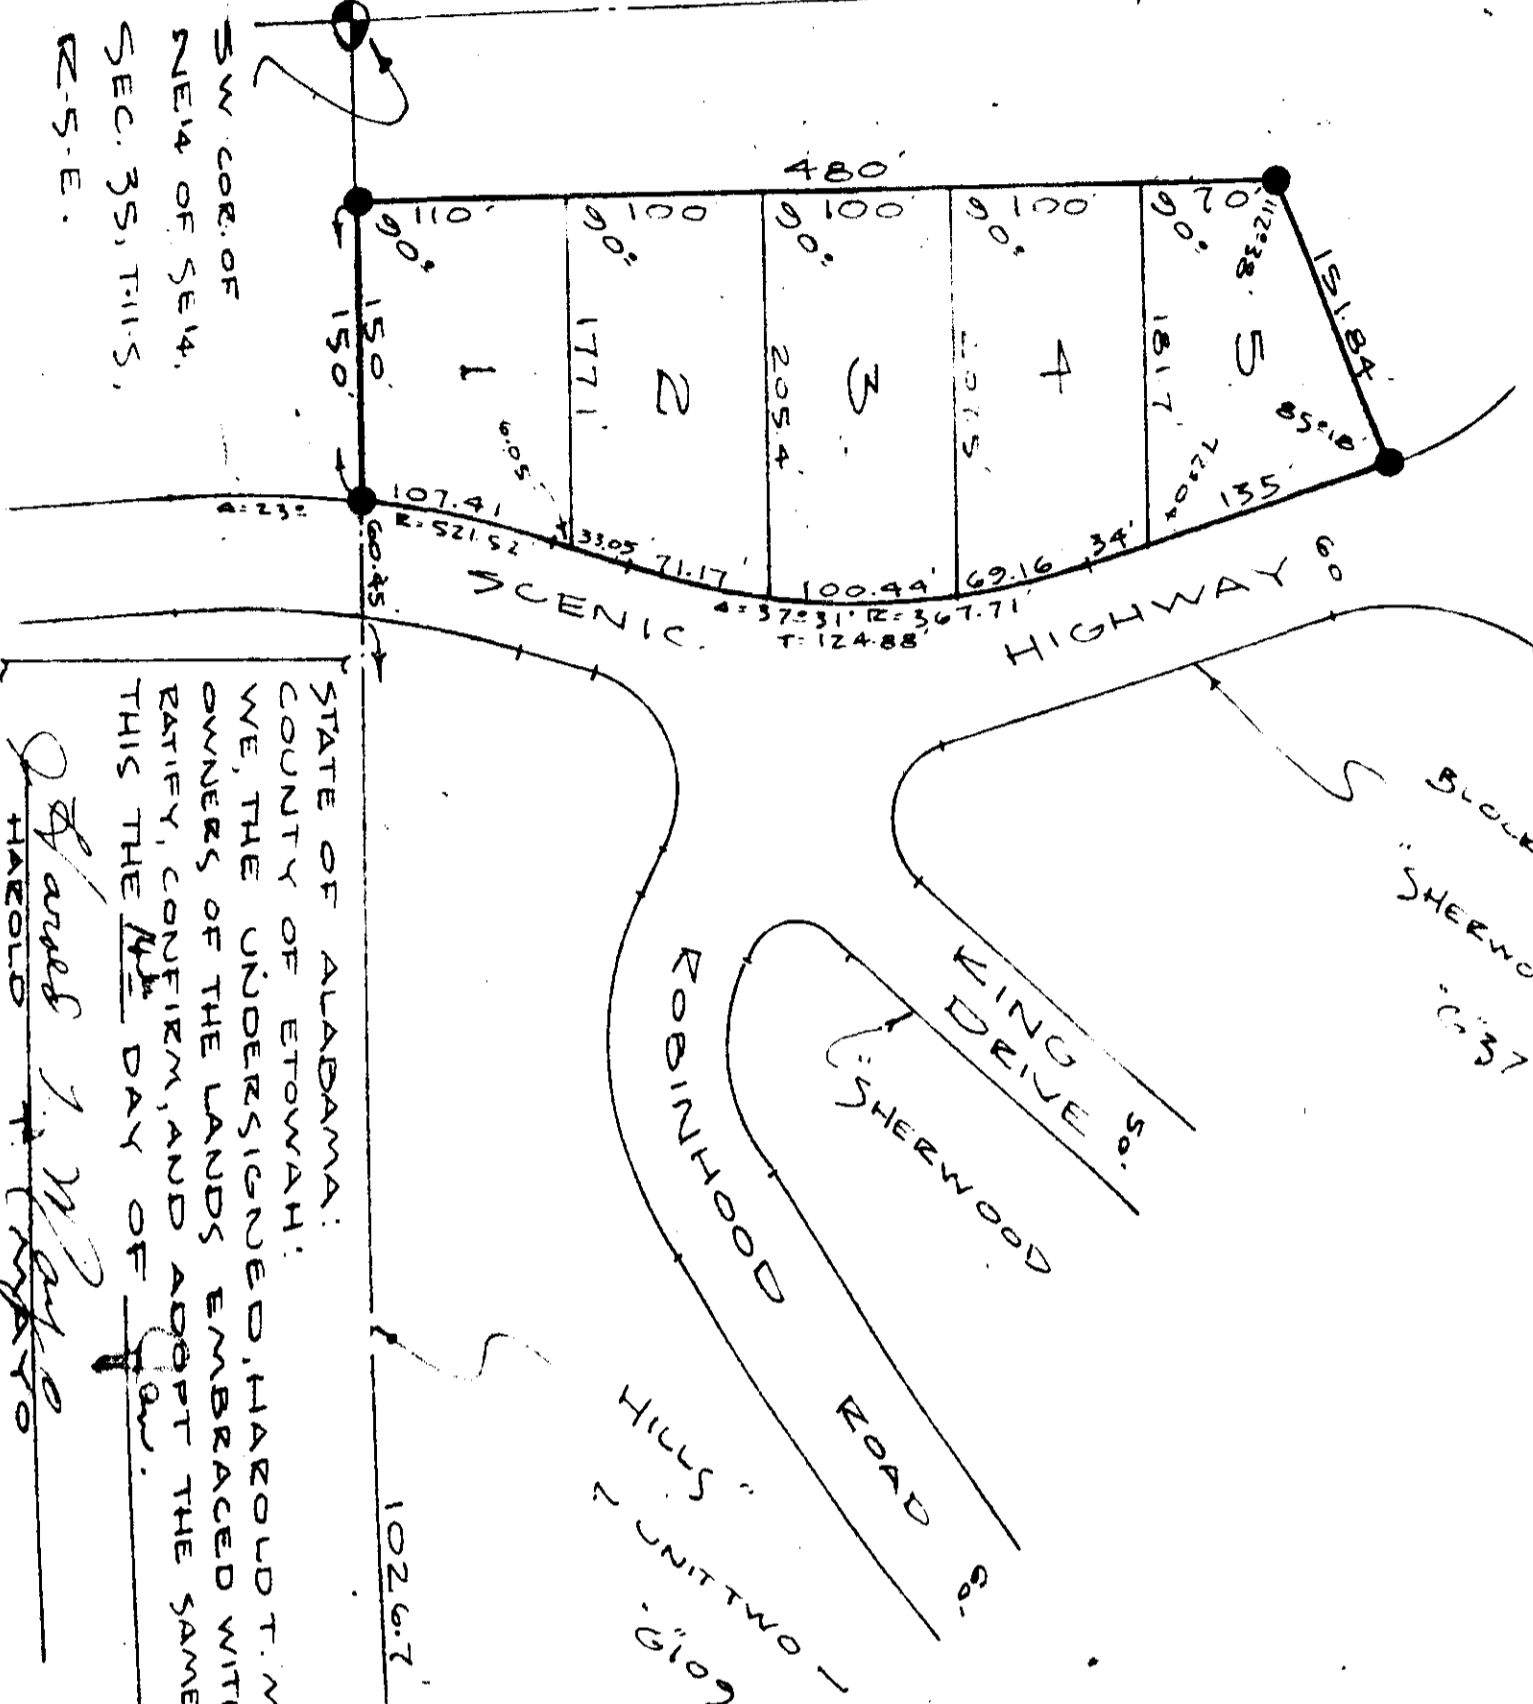 SW COR. OF
NE¼ OF SE¼.
SEC. 35, T-11-S,
R-5-E.
480'
110'
100'
100'
100'
70'
90°
90°
90°
90°
90°
112°38'
151.84'
85°18'
150'
150'
1
177.1'
2
205.4'
3
4
181.7'
5
72°04'
6.05'
107.41
R=521.52'
33.05'
71.17'
100.44'
69.16
34'
135'
Δ=23°
Δ=37°31' R=367.71'
T=124.88'
60.45'
SCENIC
HIGHWAY
60
BLOCK
"SHERWO
"G"37
KING
DRIVE 50'
"SHERWOOD
ROBINHOOD
ROAD
60'
HILLS"
UNIT TWO
"G"109
1026.2'
STATE OF ALABAMA:
COUNTY OF ETOWAH:
WE, THE UNDERSIGNED, HAROLD T. M
OWNERS OF THE LANDS EMBRACED WITH
RATIFY, CONFIRM, AND ADOPT THE SAME
THIS THE 14th DAY OF Jan.
Harold T. Mayo
HAROLD T. MAYO